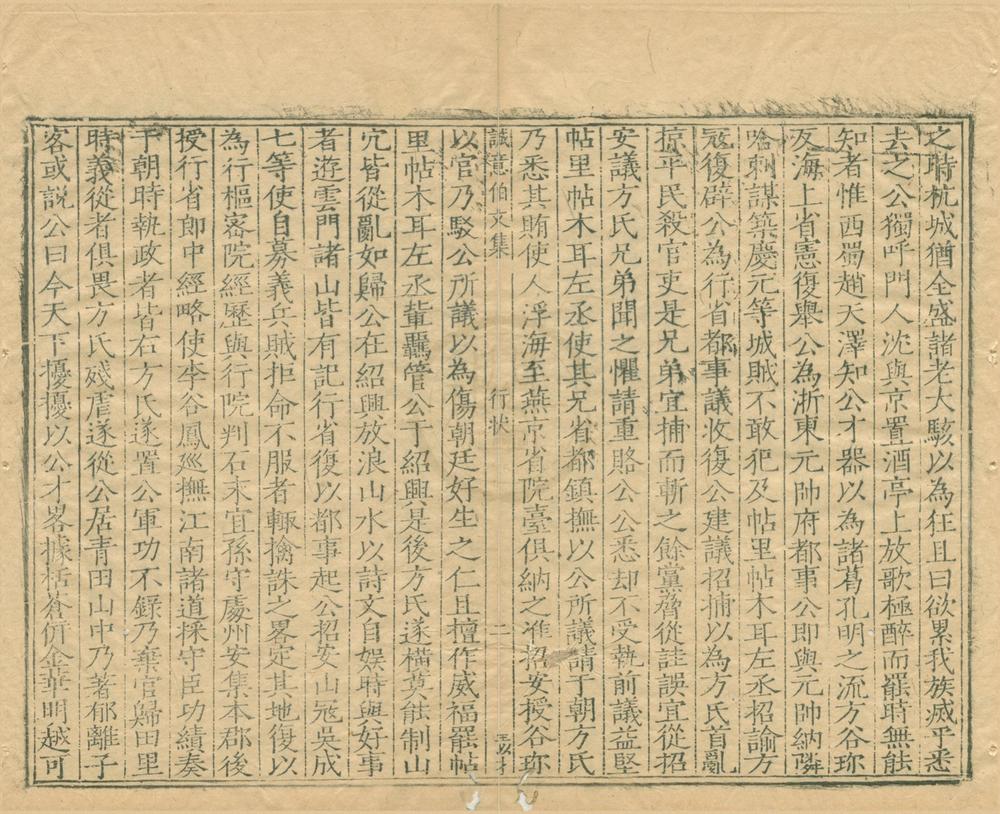 之時杭城猶全盛諸老大駭以為狂且曰欲累我族滅乎悉
去之公獨呼門人沈與京置酒亭上放歌極醉而罷時無能
知者惟西蜀趙天澤知公才器以為諸葛孔明之流方谷珍
反海上省憲復舉公為浙東元帥府都事公即與元帥納隣
哈剌謀築慶元等城賊不敢犯及帖里帖木耳左丞招諭方
冦復辟公為行省都事議收復公建議招捕以為方氏首亂
掠平民殺官吏是兄弟宜捕而斬之餘黨脅從詿誤宜從招
安議方氏兄弟聞之懼請重賂公公悉却不受執前議益堅
帖里帖木耳左丞使其兄省都鎮撫以公所議請于朝方氏
乃悉其賄使人浮海至燕京省院臺俱納之准招安授谷珍
誠意伯文集 行狀 二
以官乃駁公所議以為傷朝廷好生之仁且擅作威福罷帖
里帖木耳左丞軰羈管公于紹興是後方氏遂橫莫能制山
穴皆從亂如歸公在紹興放浪山水以詩文自娛時與好事
者遊雲門諸山皆有記行省復以都事起公招安山冦吳成
七等使自募義兵賊拒命不服者輙擒誅之畧定其地復以
為行樞密院經歷與行院判石末宜孫守處州安集本郡後
授行省郎中經略使李谷鳳廵撫江南諸道採守臣功績奏
于朝時執政者皆右方氏遂置公軍功不錄乃棄官歸田里
時義從者俱畏方氏殘虐遂從公居青田山中乃著郁離子
客或說公曰今天下擾擾以公才畧據栝蒼併金華明越可